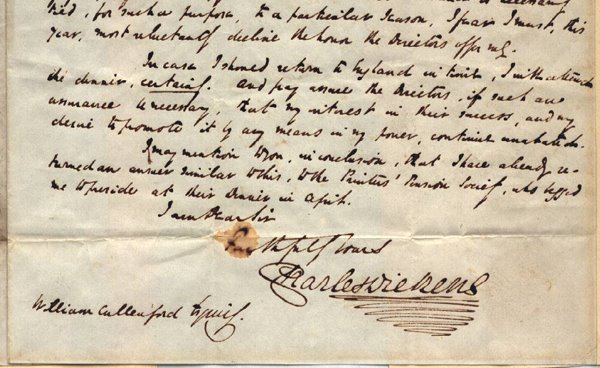 tied, for such a purpose, to a particular season, I fear I must, this
year, most reluctantly decline the honor the Directors offer me.
In case I should return to England in time, I will attend
the dinner, certainly. And pray assure the Directors, if such an
assurance be necessary, that my interest in their success, and my
desire to promote it by any means in my power, continue unabated.
I may mention to you, in conclusion, that I have already re-
turned an answer similar to this, to the Printers' Pension Society, who begged
me to preside at their Dinner in April.
I am Dear Sir
Faithfully Yours
Charles Dickens
William Cullenford Esquire.